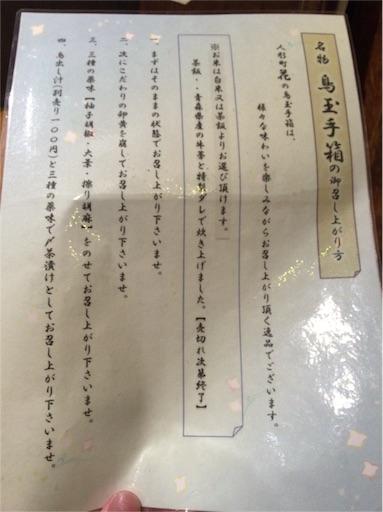 名物 鳥玉手箱の御召し上がり方
人形町 花の鳥玉手箱は、
様々な味わいを楽しみながらお召し上がり頂く逸品でございます。
※お米は白米又は茶飯よりお選び頂けます。
茶飯・・青森県産の牛蒡と特製ダレで炊き上げました。【売切れ次第終了】
一、まずはそのままの状態でお召し上がり下さいませ。
二、次にこだわりの卵黄を崩してお召し上がり下さいませ。
三、三種の薬味【柚子胡椒・大葉・擦り胡麻】をのせてお召し上がり下さいませ。
四、鳥出し汁(別売り一〇〇円)と三種の薬味で〆茶漬けとしてお召し上がり下さいませ。